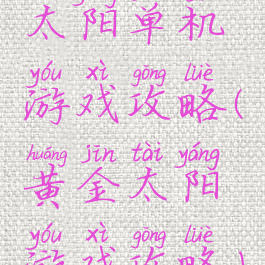 太阳单机
yóu xì gōng lüè
游戏攻略(
huáng jīn tài yáng
黄金太阳
yóu xì gōng lüè
游戏攻略)